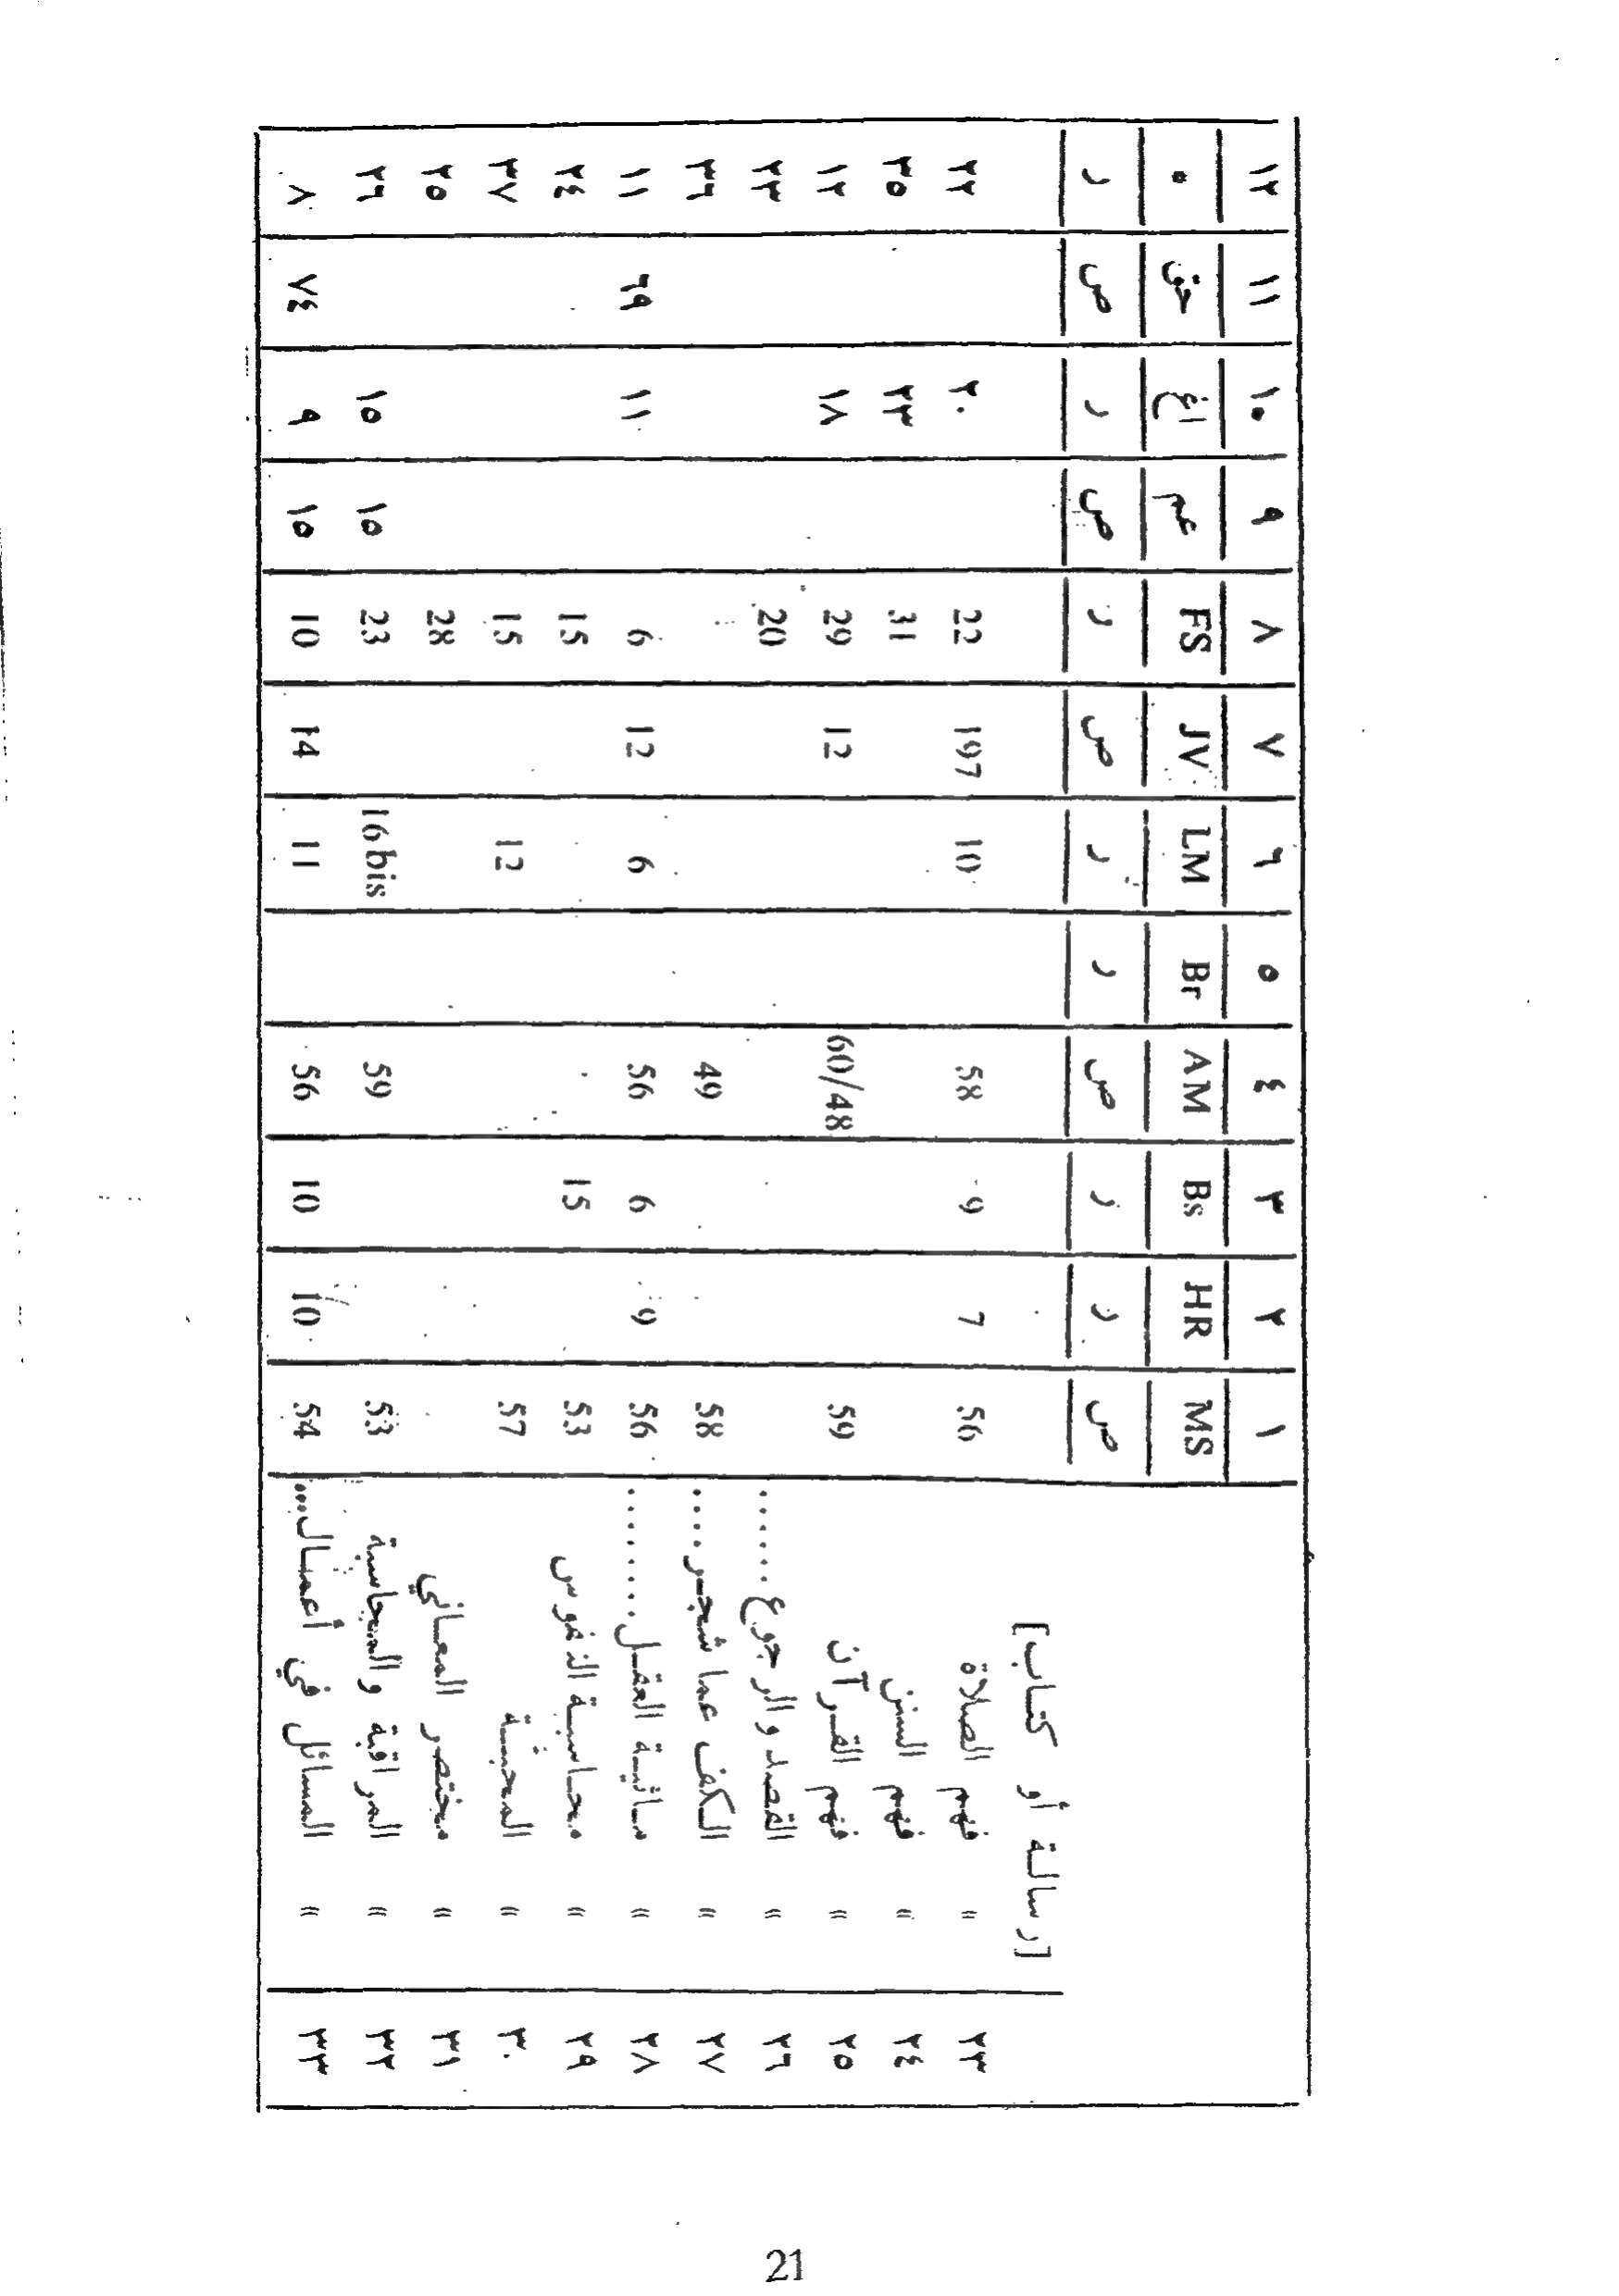 ١ ٢ ٣ ٤ ٥ ٦ ٧ ٨ ٩ ١٠ ١١ ١٢
MS HR Bs AM Br LM JV FS عم اغ حق ه
ص ر ر ص ر ر ص ر ص ر ص ر
[رسالة أو كتاب]
٢٣ " فهم الصلاة 56 7 9 58 10 197 22 ٢٠ ٢٢
٢٤ " فهم السنن 31 ٢٣ ٣٥
٢٥ " فهم القرآن 59 60/48 12 29 ١٨ ١٢
٢٦ " القصد والرجوع...... 20 ٢٣
٢٧ " الكف عما شجر.... 58 49 ٣٦
٢٨ " مائية العقل........ 56 9 6 56 6 12 6 ١١ ٦٩ ١١
٢٩ " محاسبة النفوس 53 15 15 ٢٤
٣٠ " المحبة 57 12 15 ٣٧
٣١ " مختصر المعاني 28 ٢٥
٣٢ " المراقبة والمحاسبة 53 59 16bis 23 ١٥ ١٥ ٢٦
٣٣ " المسائل في أعمال... 54 10 10 56 11 14 10 ١٥ ٩ ٧٤ ٨
21